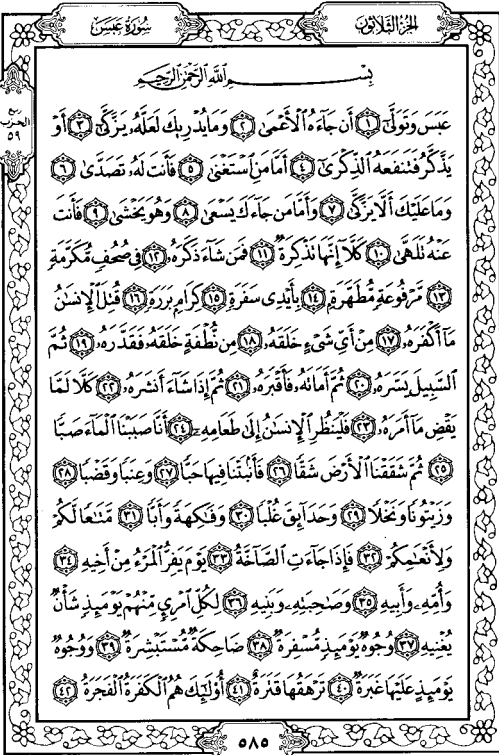 سُورَةُ عَبَسَ
الجُزْءُ الثَّلَاثُونَ
ربع
الحزب
٥٩
بِسْمِ اللَّهِ الرَّحْمَٰنِ الرَّحِيمِ
عَبَسَ وَتَوَلَّىٰٓ ١ أَن جَآءَهُ ٱلْأَعْمَىٰ ٢ وَمَا يُدْرِيكَ لَعَلَّهُۥ يَزَّكَّىٰٓ ٣ أَوْ
يَذَّكَّرُ فَتَنفَعَهُ ٱلذِّكْرَىٰٓ ٤ أَمَّا مَنِ ٱسْتَغْنَىٰ ٥ فَأَنتَ لَهُۥ تَصَدَّىٰ ٦
وَمَا عَلَيْكَ أَلَّا يَزَّكَّىٰ ٧ وَأَمَّا مَن جَآءَكَ يَسْعَىٰ ٨ وَهُوَ يَخْشَىٰ ٩ فَأَنتَ
عَنْهُ تَلَهَّىٰ ١٠ كَلَّآ إِنَّهَا تَذْكِرَةٌ ١١ فَمَن شَآءَ ذَكَرَهُۥ ١٢ فِى صُحُفٍ مُّكَرَّمَةٍ
١٣ مَّرْفُوعَةٍ مُّطَهَّرَةٍۭ ١٤ بِأَيْدِى سَفَرَةٍ ١٥ كِرَامٍۭ بَرَرَةٍ ١٦ قُتِلَ ٱلْإِنسَٰنُ
مَآ أَكْفَرَهُۥ ١٧ مِنْ أَىِّ شَىْءٍ خَلَقَهُۥ ١٨ مِن نُّطْفَةٍ خَلَقَهُۥ فَقَدَّرَهُۥ ١٩ ثُمَّ
ٱلسَّبِيلَ يَسَّرَهُۥ ٢٠ ثُمَّ أَمَاتَهُۥ فَأَقْبَرَهُۥ ٢١ ثُمَّ إِذَا شَآءَ أَنشَرَهُۥ ٢٢ كَلَّا لَمَّا
يَقْضِ مَآ أَمَرَهُۥ ٢٣ فَلْيَنظُرِ ٱلْإِنسَٰنُ إِلَىٰ طَعَامِهِۦٓ ٢٤ أَنَّا صَبَبْنَا ٱلْمَآءَ صَبًّا
٢٥ ثُمَّ شَقَقْنَا ٱلْأَرْضَ شَقًّا ٢٦ فَأَنۢبَتْنَا فِيهَا حَبًّا ٢٧ وَعِنَبًا وَقَضْبًا ٢٨
وَزَيْتُونًا وَنَخْلًا ٢٩ وَحَدَآئِقَ غُلْبًا ٣٠ وَفَٰكِهَةً وَأَبًّا ٣١ مَّتَٰعًا لَّكُمْ
وَلِأَنْعَٰمِكُمْ ٣٢ فَإِذَا جَآءَتِ ٱلصَّآخَّةُ ٣٣ يَوْمَ يَفِرُّ ٱلْمَرْءُ مِنْ أَخِيهِ ٣٤
وَأُمِّهِۦ وَأَبِيهِ ٣٥ وَصَٰحِبَتِهِۦ وَبَنِيهِ ٣٦ لِكُلِّ ٱمْرِئٍ مِّنْهُمْ يَوْمَئِذٍ شَأْنٌ
يُغْنِيهِ ٣٧ وُجُوهٌ يَوْمَئِذٍ مُّسْفِرَةٌ ٣٨ ضَاحِكَةٌ مُّسْتَبْشِرَةٌ ٣٩ وَوُجُوهٌ
يَوْمَئِذٍ عَلَيْهَا غَبَرَةٌ ٤٠ تَرْهَقُهَا قَتَرَةٌ ٤١ أُو۟لَٰٓئِكَ هُمُ ٱلْكَفَرَةُ ٱلْفَجَرَةُ ٤٢
٥٨٥